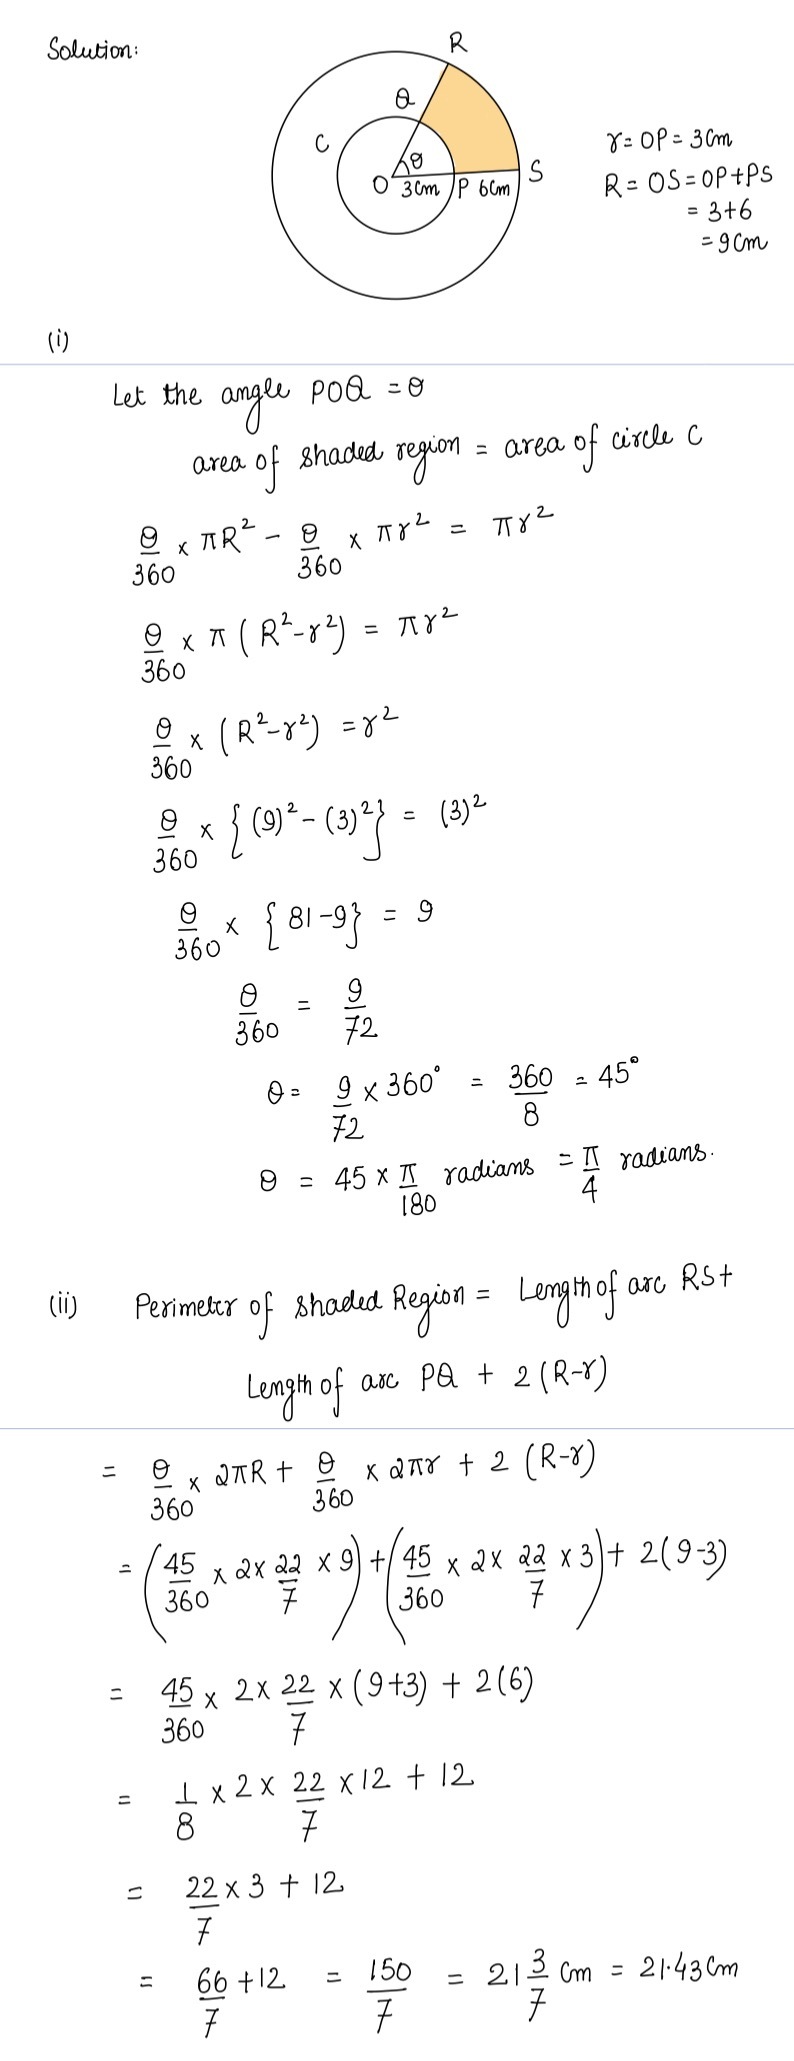 Solution:
R
Q
C
θ
O 3cm P 6cm S
r = OP = 3cm
R = OS = OP+PS
= 3+6
= 9cm
(i)
Let the angle POQ = θ
area of shaded region = area of circle C
θ/360 × πR² − θ/360 × πr² = πr²
θ/360 × π (R²−r²) = πr²
θ/360 × (R²−r²) = r²
θ/360 × {(9)² − (3)²} = (3)²
θ/360 × {81−9} = 9
θ/360 = 9/72
θ = 9/72 × 360° = 360/8 = 45°
θ = 45 × π/180 radians = π/4 radians.
(ii) Perimeter of shaded Region = Length of arc RS+
Length of arc PQ + 2(R−r)
= θ/360 × 2πR + θ/360 × 2πr + 2 (R−r)
= (45/360 × 2× 22/7 × 9) + (45/360 × 2× 22/7 × 3) + 2(9−3)
= 45/360 × 2× 22/7 × (9+3) + 2(6)
= 1/8 × 2 × 22/7 × 12 + 12
= 22/7 × 3 + 12
= 66/7 + 12 = 150/7 = 21 3/7 cm = 21.43cm